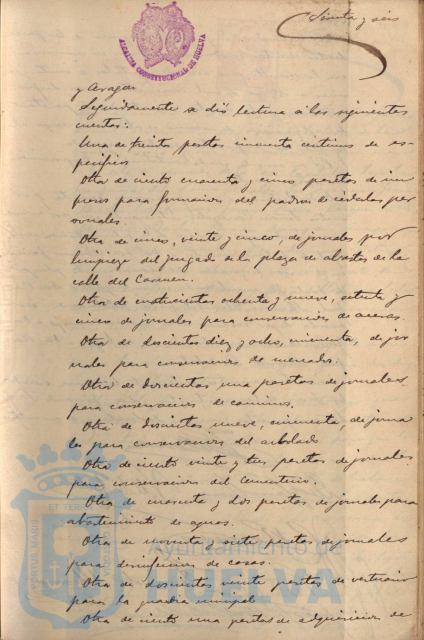 ALCALDIA CONSTITUCIONAL DE HUELVA
y seis
y Aragon
Seguidamente se dió lectura á las siguientes
cuentas:
Una de treinta pesetas cincuenta centimos de es-
pecificos
Otra de ciento cuarenta y cinco pesetas de im
presos para formacion del padron de cédulas per
sonales
Otra de cinco, veinte y cinco, de jornales por
limpieza del juzgado de la plaza de abastos de la
calle del Carmen.
Otra de cuatrocientas ochenta y nueve, setenta y
cinco de jornales para conservacion de aceras.
Otra de doscientos diez y ocho, cincuenta, de jor
nales para conservacion de mercados.
Otra de doscientas una pesetas de jornales
para conservacion de caminos.
Otra de doscientas nueve, cincuenta, de jorna
les para conservacion del arbolado
Otra de ciento veinte y tres pesetas de jornales
para conservacion del Cementerio.
Otra de cuarenta y dos pesetas de jornales para
abastecimiento de aguas.
Otra de noventa y siete pesetas de jornales
para de casas.
Otra de doscientos veinte pesetas, de vestuario
para la guardia municipal
Otra de ciento una pesetas de adquisicion de
Ayuntamiento de
HUELVA